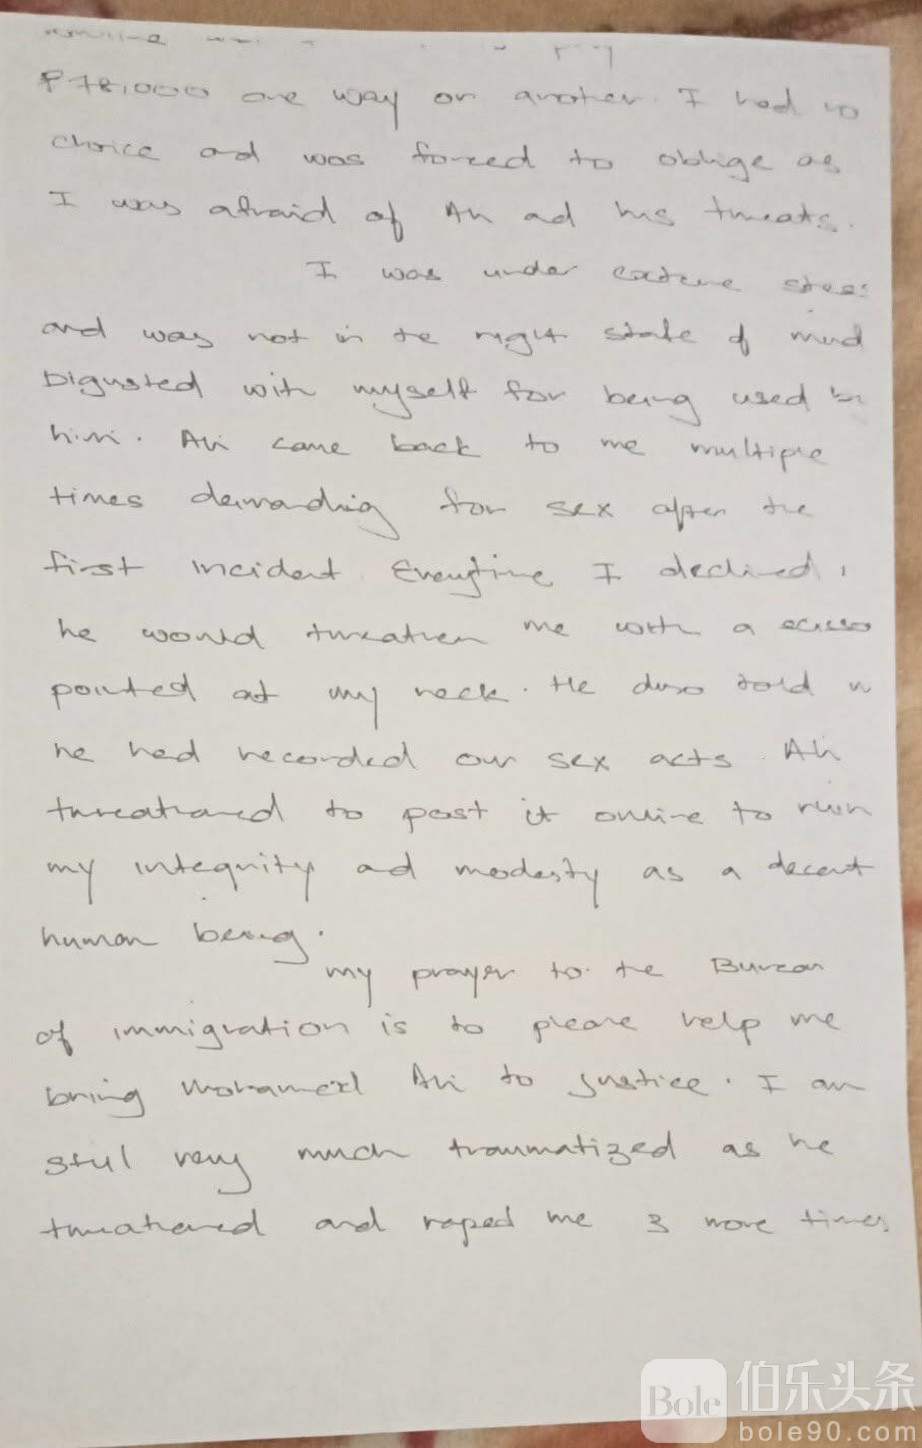 ₱78,000 one way or another. I had no
choice ad was forced to oblige as
I was afraid of Ali ad his threats.
I was under extreme stress
and was not in the right state of mind
Digusted with myself for being used
him. Ali came back to me multiple
times demanding for sex after the
first incident Everytime I declined,
he would threathen me with a
pointed at my neck. He also told
he had recorded our sex acts Ali
threathened to post it online to ruin
my integrity ad modesty as a decent
human being.
my prayer to the Bureau
of immigration is to please help me
bring Mohamed Ali to justice. I am
still very much traumatized as he
threathened and raped me 3 more times
Bole 伯乐头条
bole90.com